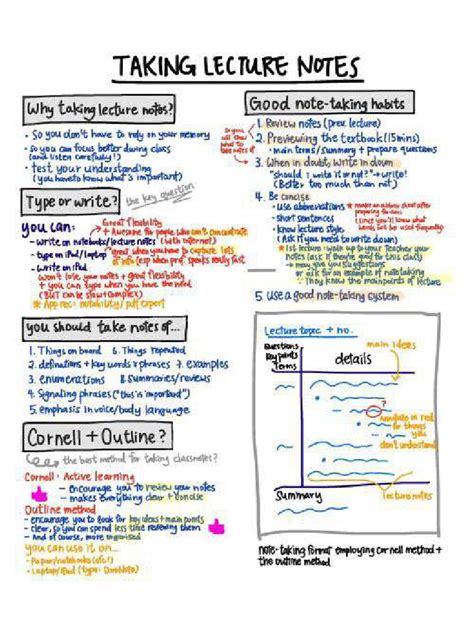 TAKING LECTURE NOTES
Why taking lecture notes?
• So you don't have to rely on your memory
• So you can focus better during class
(and listen carefully!)
• test your understanding
(you have to know what's important)
Type or write?
the key question
you can:
Great flexibility
+ Awesome for people who can't concentrate
- write on notebooks/lecture notes (with internet)
- type on iPad/laptop
great when you have to capture lots
of info (esp when prof speaks really fast)
- write on iPad
won't lose your notes + great flexibility
+ you can type when you have the need
(BUT can be slow + complex)
* App rec: notability / pdf expert
you should take notes of...
1. Things on board 6. Things repeated
2. definitions + key words & phrases 7. examples
3. enumerations 8. summaries/reviews
4. Signaling phrases ("this is important")
5. emphasis in voice/body language
Cornell + Outline?
the best method for taking classnotes?
Cornell: Active learning
- encourage you to review your notes
- makes everything clear + concise
Outline method
- encourage you to look for key ideas + main points
- clear, so you can spend less time reviewing them
- And of course, more organised
you can use it on...
- Paper/notebooks (etc!)
- Laptop/iPad (type:
Good note-taking habits
1. Review notes (prev. lecture)
2. Previewing the textbook (15mins)
• main terms/summary + prepare questions
So you
will know
what to
take notes of
3. When in doubt, write it down
"should I write it or not?" → write!
(Better too much than not)
4. Be concise
• use abbreviations
* make an abbrev. sheet after
preparing for class
(since you'll know what
words will be used frequently)
• short sentences
• know lecture style
(Ask if you need to write down)
* 1st lecture walk up to your teacher/your
notes (ask if they're good for this class)
→ may give you suggestions
or ask for an example of notetaking
(They know the main points of lecture)
5. Use a good note-taking system
Lecture topic + no.
main ideas
Questions
Key points
Terms
details
?
Annotate in red
for things
you
don't understand
Summary
lecture notes
note-taking format employing cornell method +
the outline method